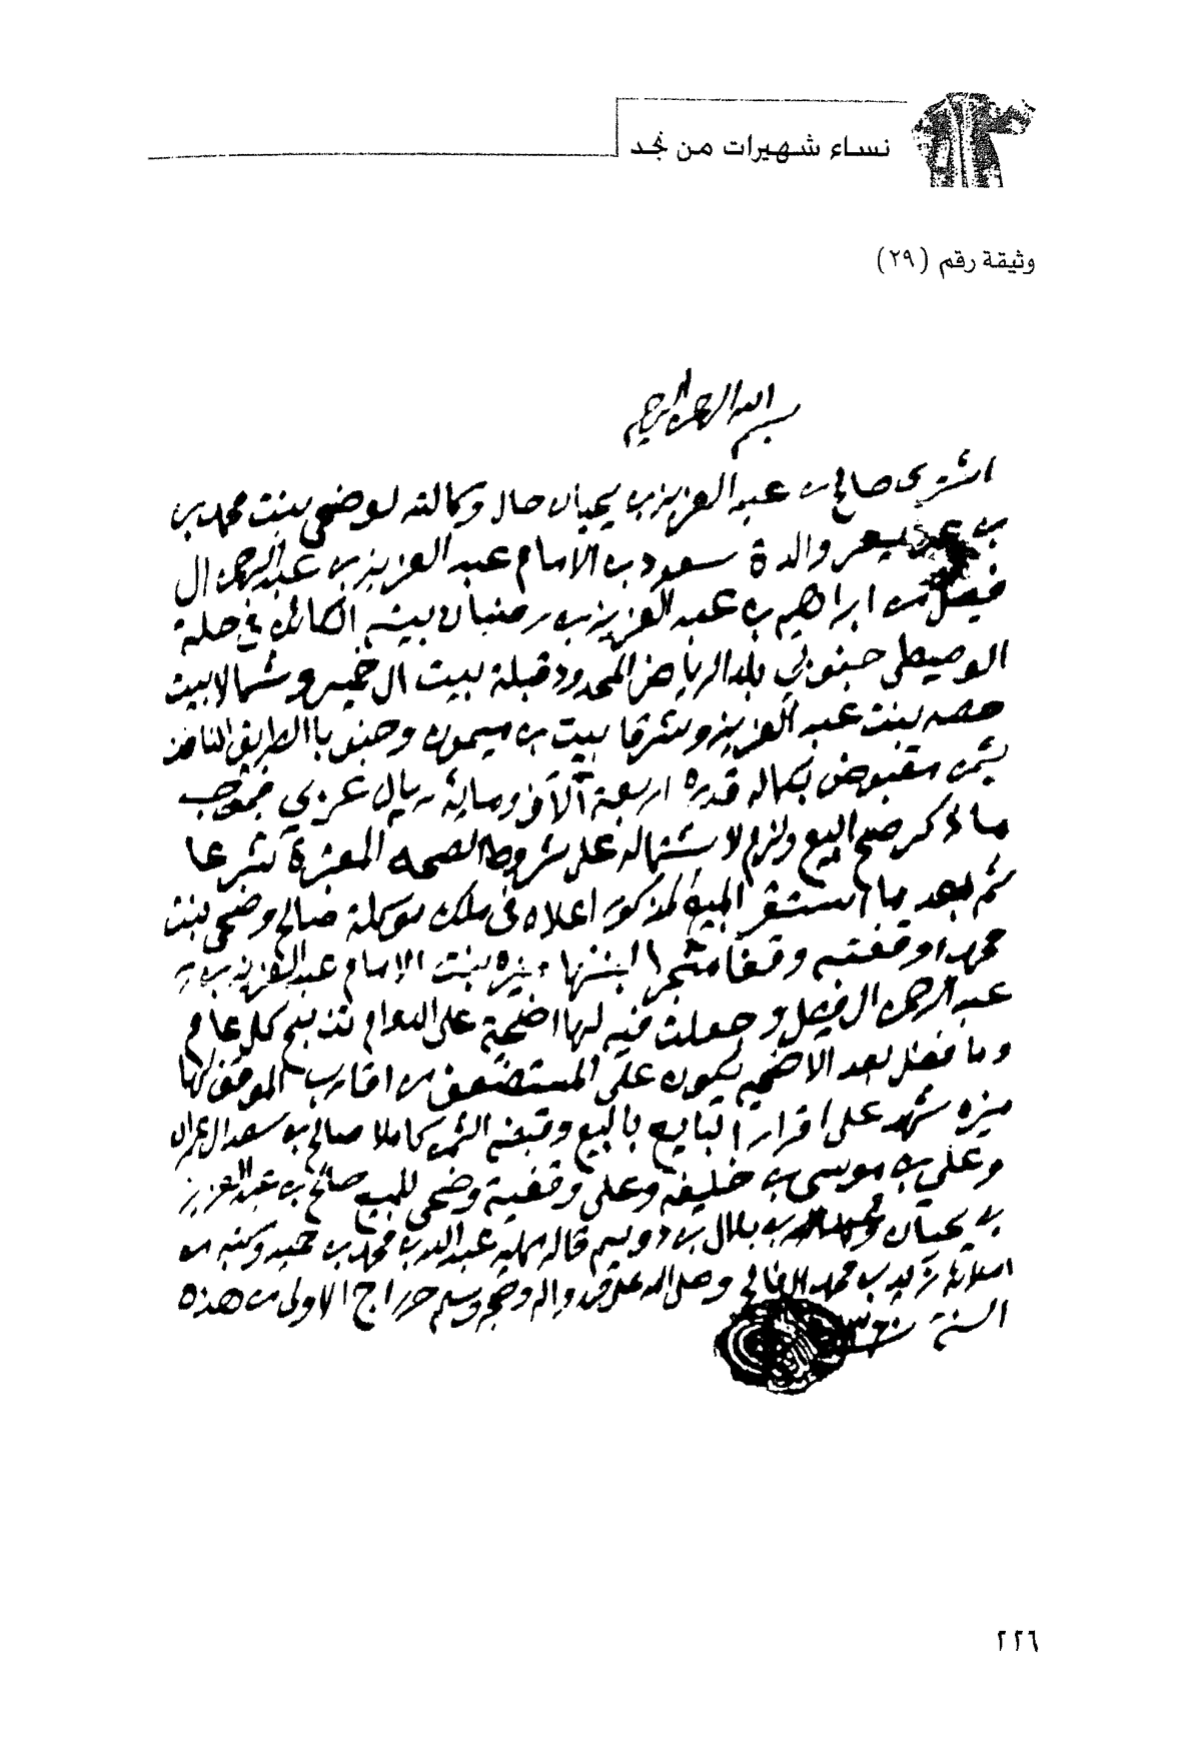 نساء شهيرات من نجد
وثيقة رقم (٢٩)
بسم الله الرحمن الرحيم
اشترى صالح بن عبد العزيز بن يحيان حال وكالته لوضحى بنت محمد بن
بن عريعر والدة سعود بن الامام عبد العزيز بن عبد الرحمن ال
فيصل من ابراهيم بن عبد العزيز بن رضيان بيته الكائن في حلة
الوصيطى جنوبي بلد الرياض المحدود قبلة بيت ال خميس وشمالا بيت
حصه بنت عبد العزيز وشرقا بيت بن ميمون وجنوبا الطريق النافذ
بثمن مقبوض بكماله قدره اربعة آلاف ومائة ريال عربي فبموجب
ما ذكر صح البيع ولزم لاشتماله على شروط الصحه المعتبرة شرعا
ثم بعد ما استقر المبيع المذكور اعلاه في ملك موكلة صالح وضحى بنت
محمد اوقفته وقفا منجزا لبنتها منيره بنت الإمام عبد العزيز بن
عبد الرحمن ال فيصل وجعلت فيه لها اضحية على الدوام تذبح كل عام
وما فضل بعد الاضحيه يكون على المستضعف من اقارب الموقف لها
منيره شهد على اقرار البايع بالبيع وقبضه الثمن كاملا صالح بن سعد ال
وعلي بن موسى بن خليفه وعلى وقفية وضحى للبيع صالح بن عبد العزيز
بن يحيان بن بلال بن دويم قاله ممليه عبد الله بن محمد بن حميد وكتبه من
املائه زيد بن محمد وصلى الله على محمد واله وصحبه وسلم حرر اج الاولى من هذه
السنة
٢٢٦